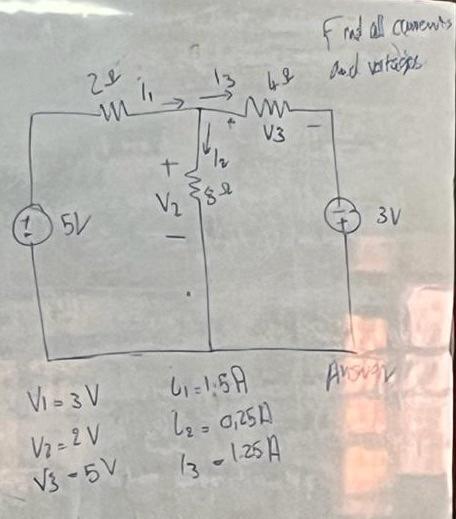 Find all currents
and voltages
2Ω i1 I3 4Ω
+ V3 −
+ I2
V2 8Ω
−
+
−
5V
−
+
3V
Answer
V1 = 3V i1 = 1.5A
V2 = 2V i2 = 0,25A
V3 = 5V I3 = 1.25A